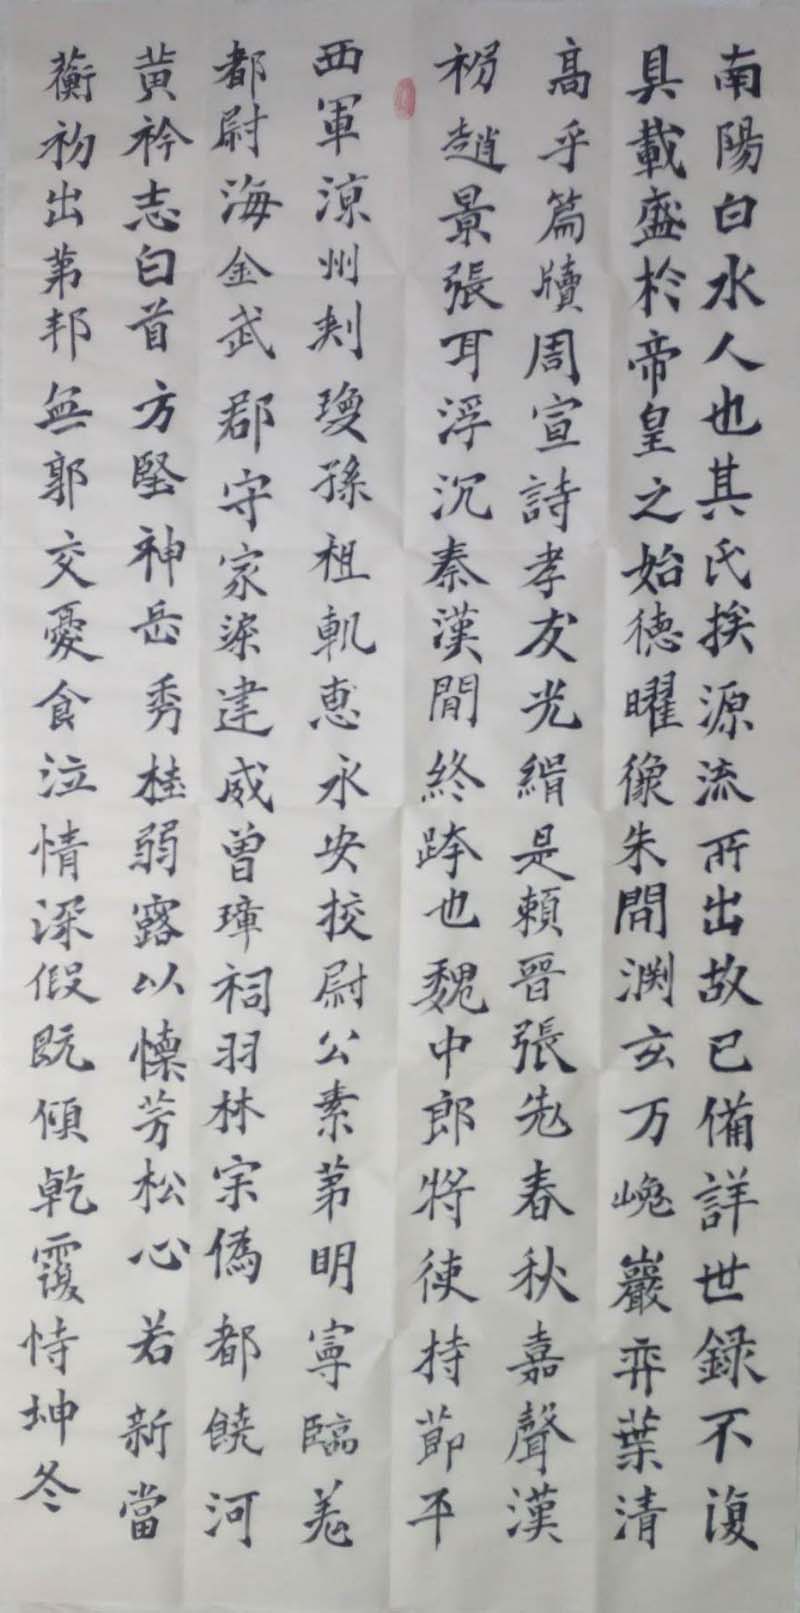 南陽白水人也其氏挨源流所出故已備詳世錄不復
具載盛於帝皇之始德曜像朱閒渕玄万巉巖弈葉清
高乎篇牘周宣詩孝友光緝是賴晉張老春秋嘉聲漢
初趙景張耳浮沉秦漢間終跨也魏中郎將使持節平
西軍涼州刾瓊孫祖軌惠永安挍尉公素苐明寧臨羌
都尉海金武郡守家染建威曾璋祠羽林宗偽都饒河
黃衿志白首方堅神岳秀桂弱露以懍芳松心若新當
蘅初出苐邦無郭交憂食泣情深假既傾乾覆恃坤冬